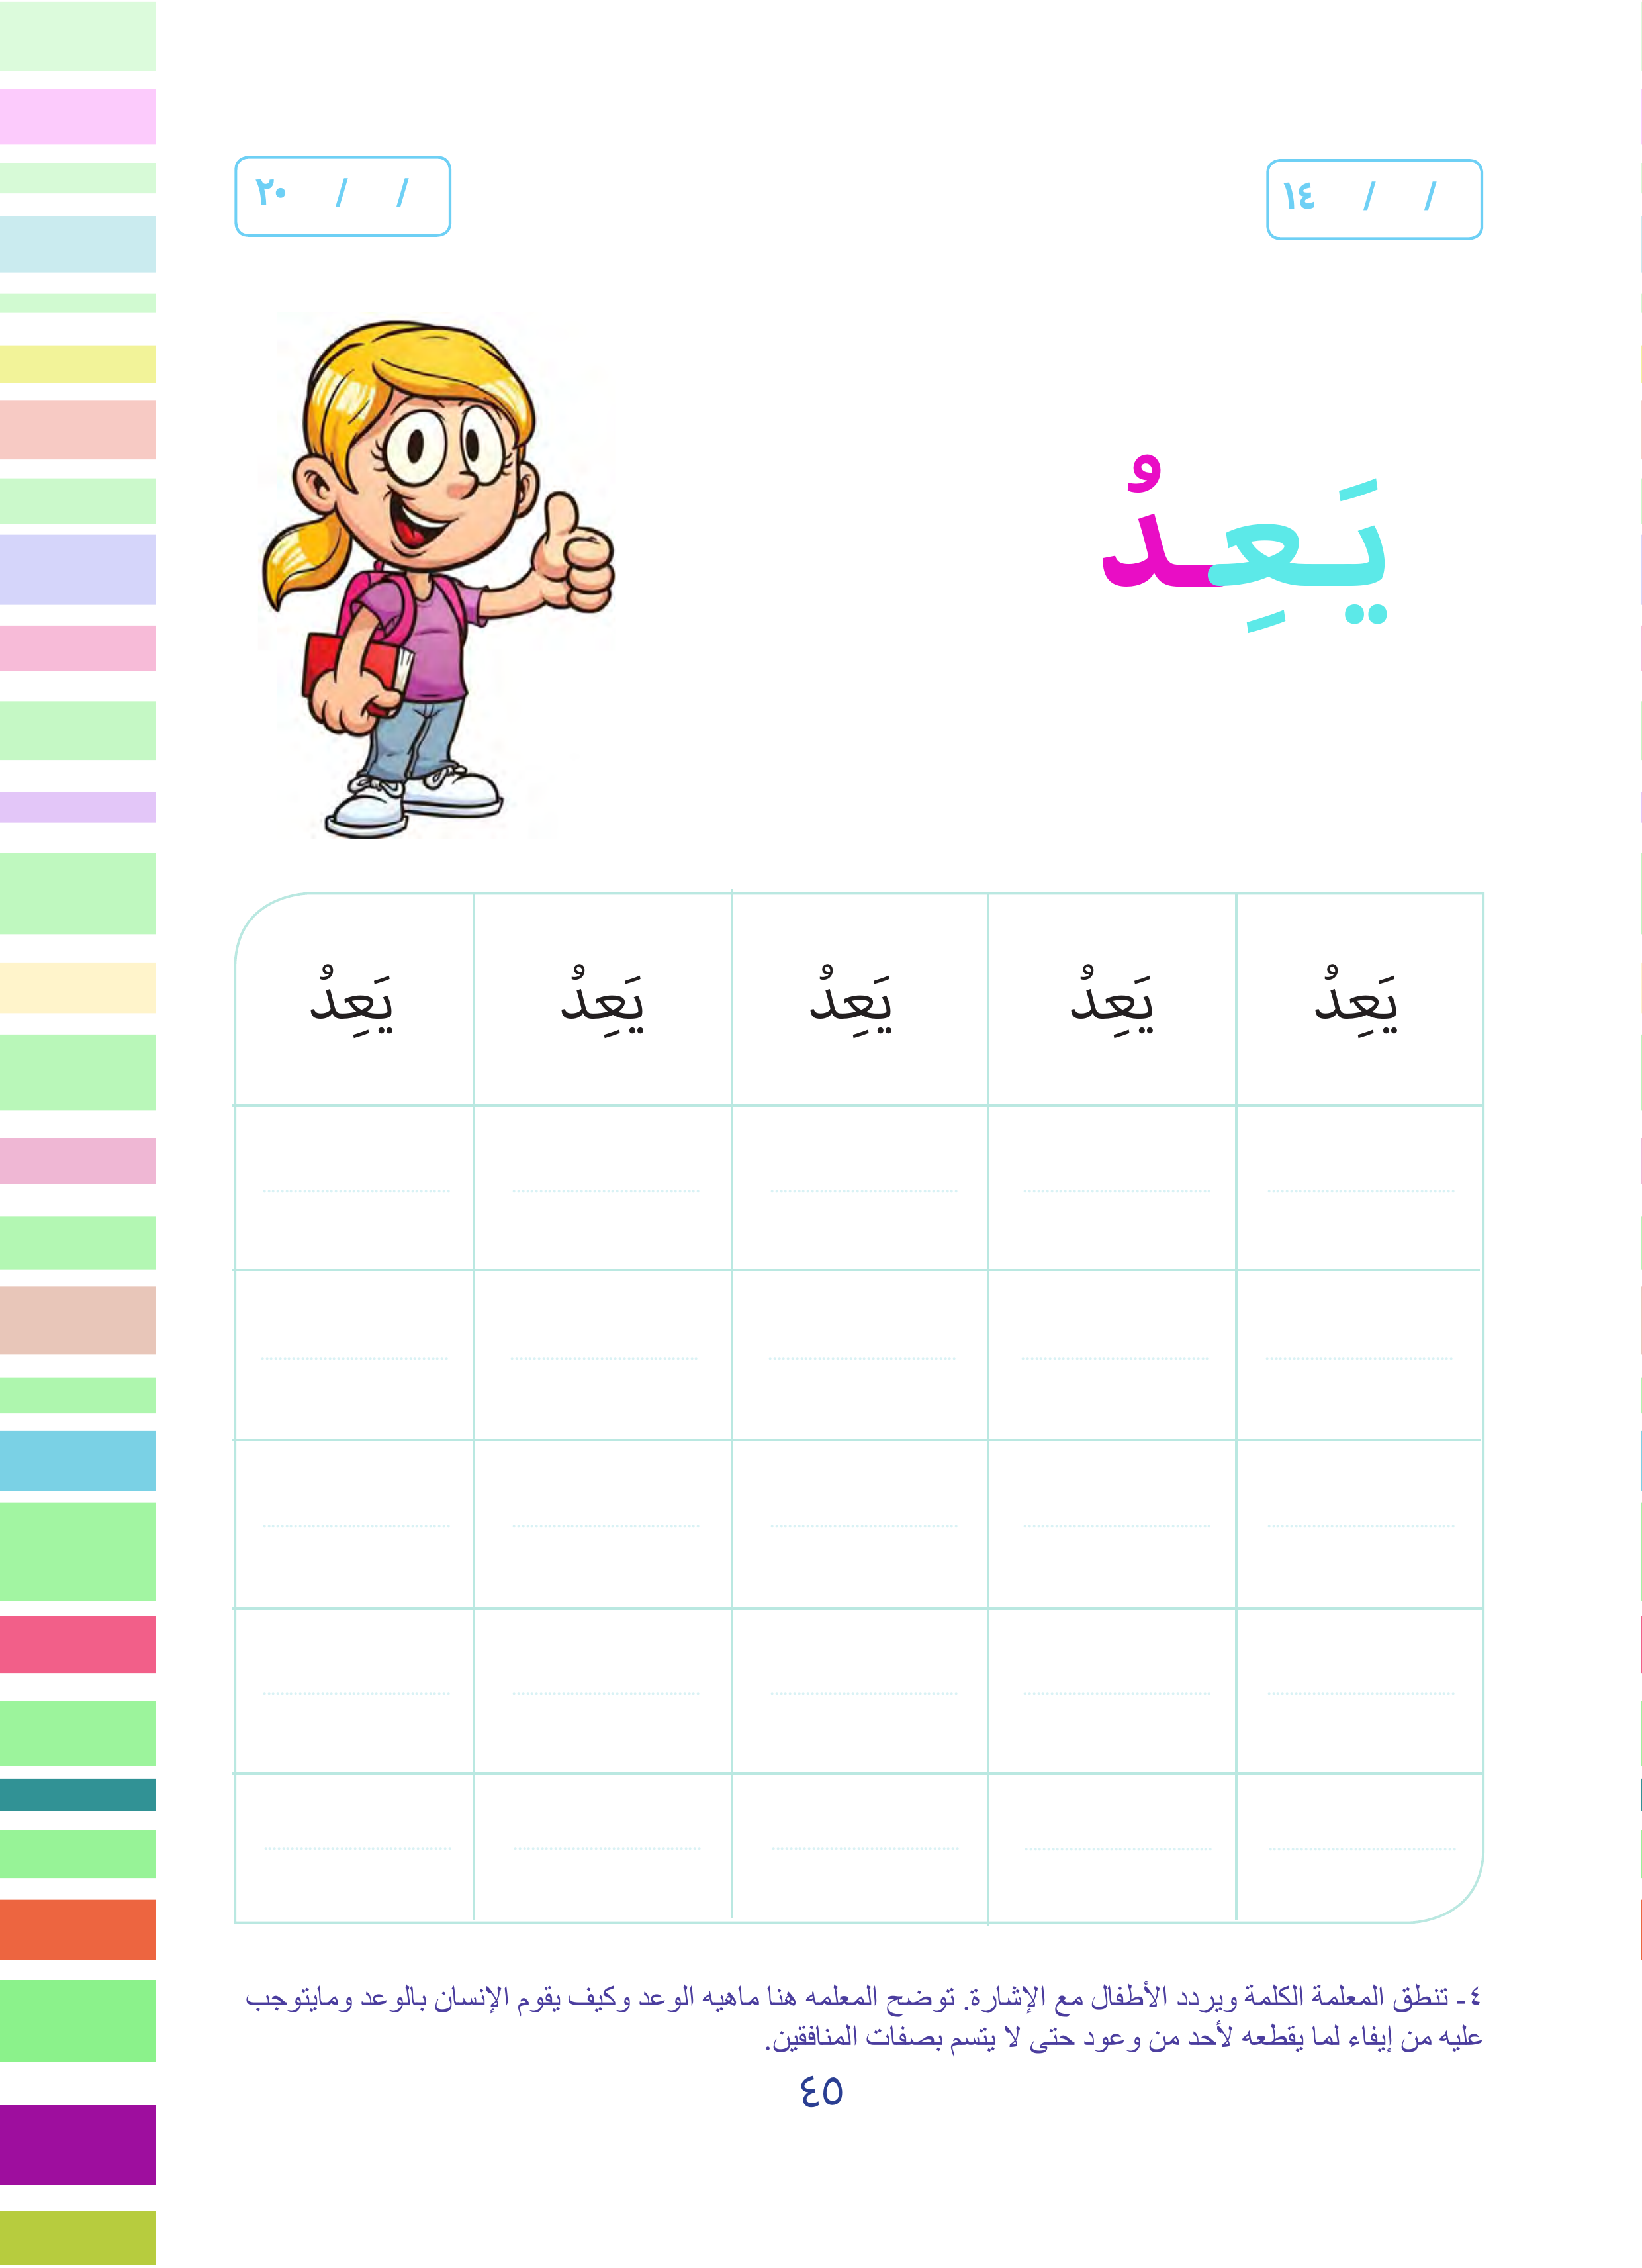 / / ١٤
/ / ٢٠
يَعِدُ
يَعِدُ يَعِدُ يَعِدُ يَعِدُ يَعِدُ
٤- تنطق المعلمة الكلمة ويردد الأطفال مع الإشارة. توضح المعلمه هنا ماهيه الوعد وكيف يقوم الإنسان بالوعد ومايتوجب
عليه من إيفاء لما يقطعه لأحد من وعود حتى لا يتسم بصفات المنافقين.
٤٥